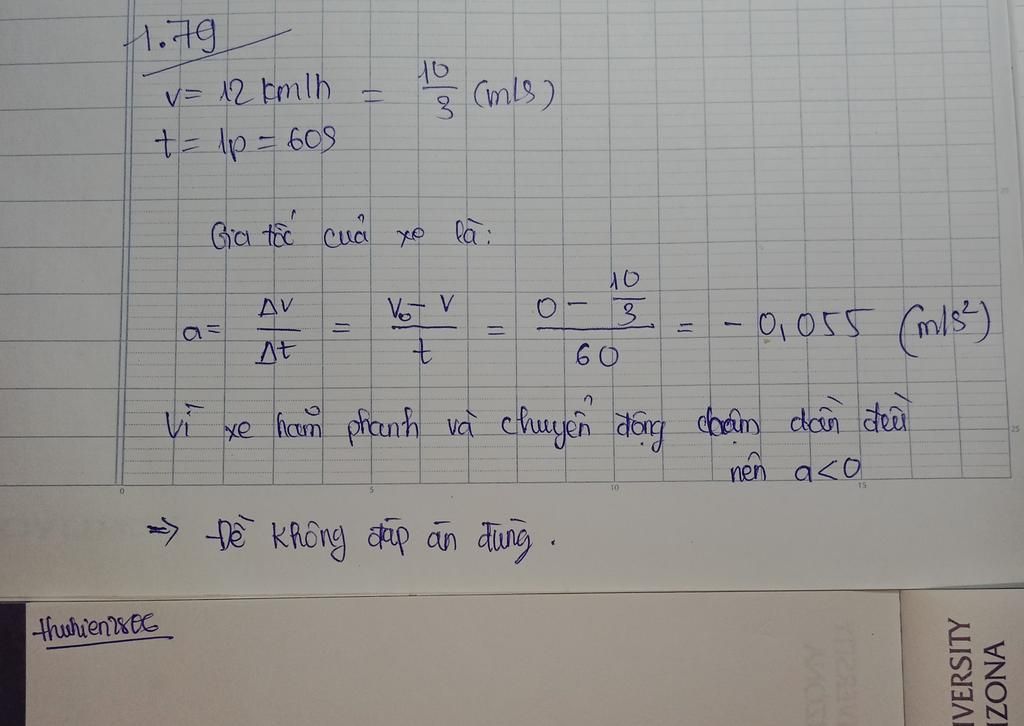 1.79
v = 12 km/h = 10/3 (m/s)
t = 1p = 60s
Gia tốc của xe là:
a = Δv/Δt = (v₀ - v)/t = (0 - 10/3)/60 = - 0,055 (m/s²)
Vì xe hãm phanh và chuyển động chậm dần đều
nên a < 0
0 5 10 15
25
=> Đề không đáp án đúng.
thuhien28E6
VERSITY
ZONA